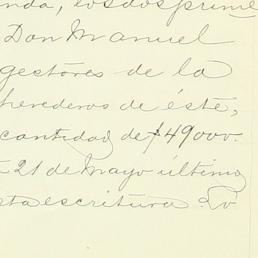 nda, los dos prime
Don Manuel
gestores de la
herederos de éste,
cantidad de $49000.
21 de Mayo último
sta escritura. Lo